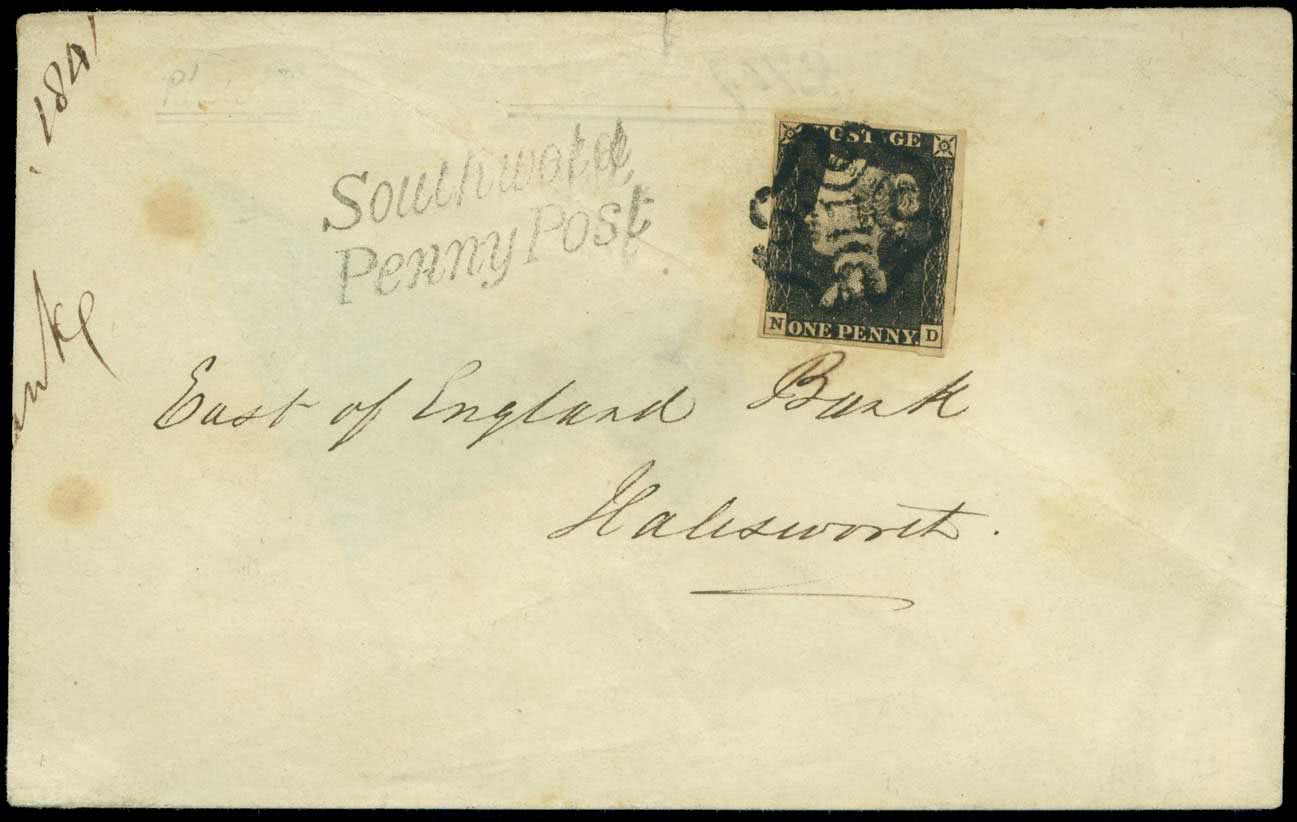 1841
Southwold
Penny Post
POSTAGE
N ONE PENNY. D
East of England Bank
Halesworth.